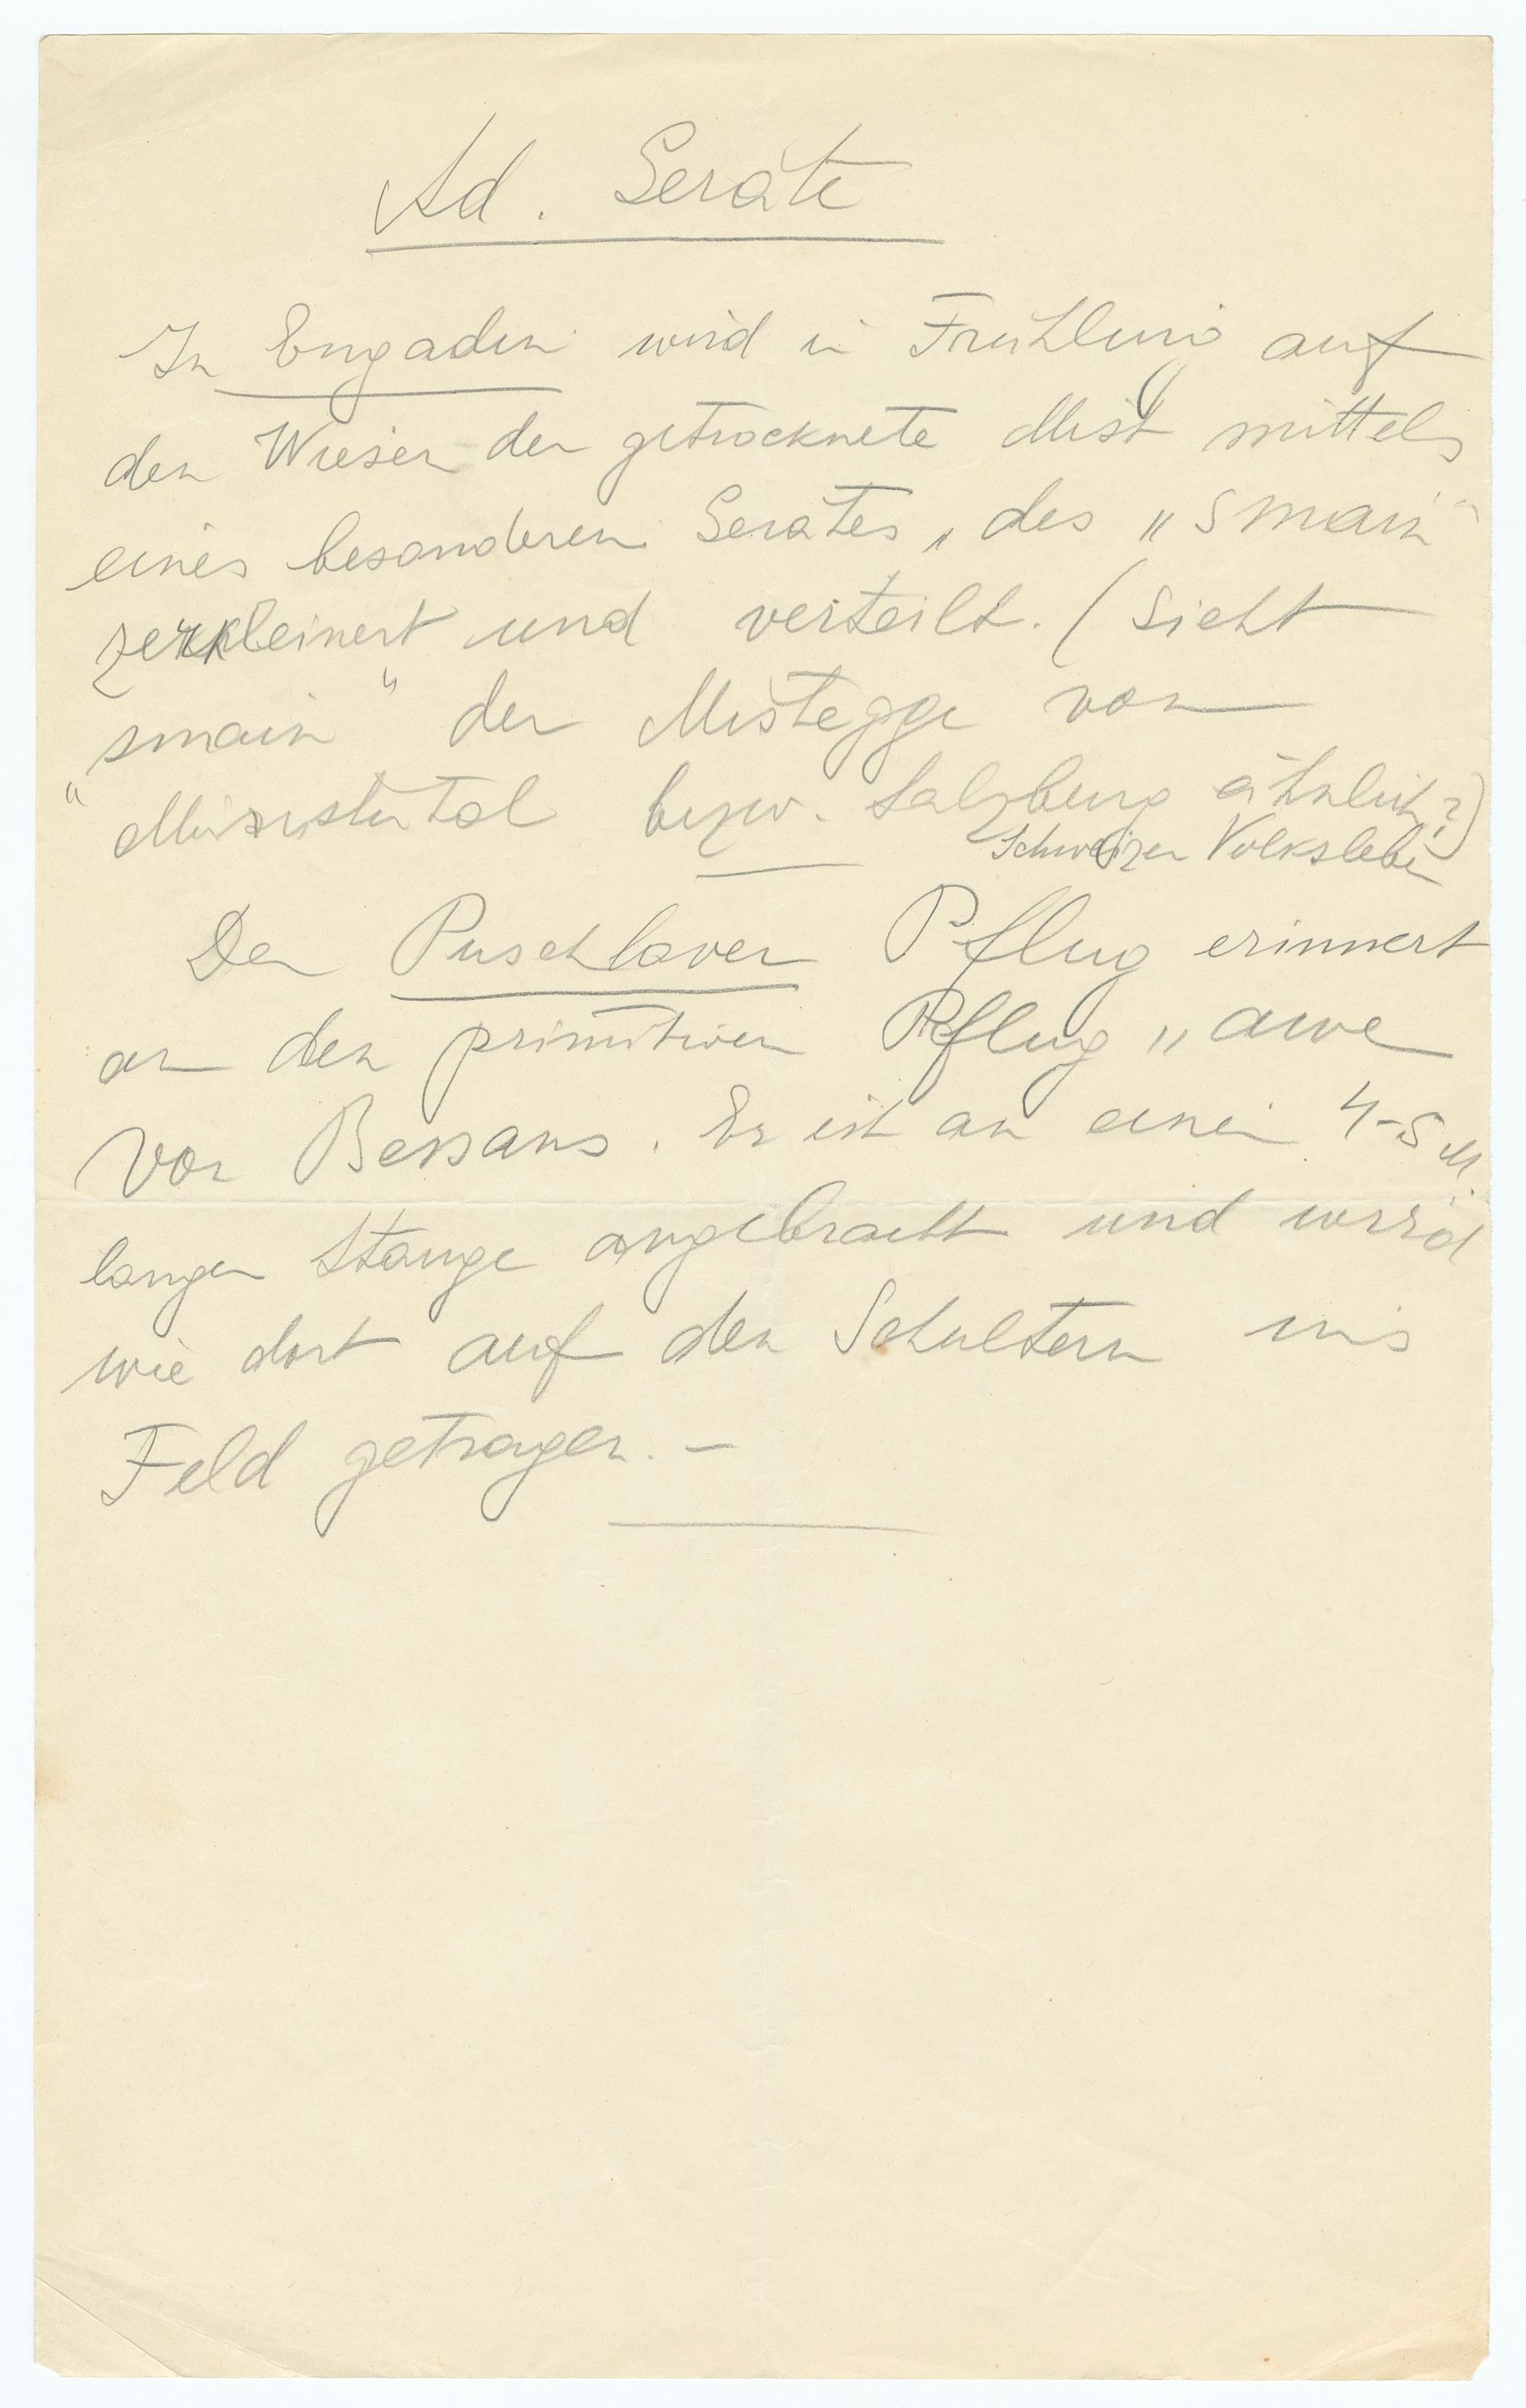 Ad. Geräte
In Engadin wird in Frühling auf
den Wiesen der getrocknete Mist mittels
eines besonderen Gerätes, des „smain“
zerkleinert und verteilt. (Sieht
„smain“ der Mistegge von
bezw. Salzburg ähnlich?)
Schweizer Volksleben
Der Puschlaver Pflug erinnert
an den primitiven Pflug „arve
von Bessans. Er ist an einer 4-5 M.
langen Stange angebracht und wird
wie dort auf den Schultern ins
Feld getragen. –